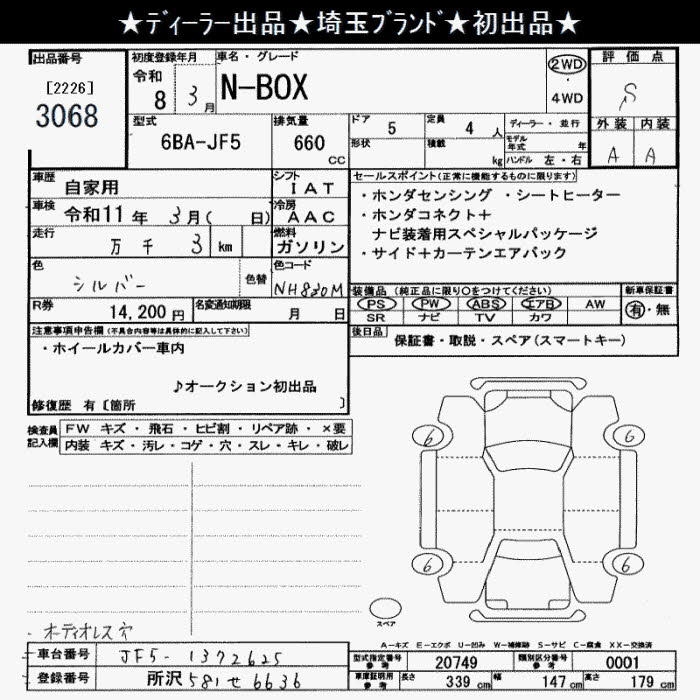 ★ディーラー出品★埼玉ブランド★初出品★
出品番号
[2226]
3068
初度登録年月
令和
8 3月
車名・グレード
N-BOX
2WD
4WD
評価点
S
外装 内装
A A
型式
6BA-JF5
排気量
660
CC
ドア 5
定員 4 人
ディーラー・並行
形状
積載
kg
モデル年式 年
ハンドル 左・右
車歴
自家用
シフト
IAT
車検
令和11年 3月( 日)
冷房
AAC
走行
万 千 3 km
燃料
ガソリン
色
シルバー
色替
色コード
NH830M
R券
14,200 円
名変通知期限
月 日
セールスポイント(正常に機能するものに限ります)
・ホンダセンシング ・シートヒーター
・ホンダコネクト+
ナビ装着用スペシャルパッケージ
・サイド+カーテンエアバック
装備品 (純正品に限り○をつけてください)
PS PW ABS エアB AW
SR ナビ TV カワ
新車保証書
有・無
後日品
保証書・取説・スペア(スマートキー)
注意事項申告欄(不具合内容等は具体的に記入して下さい)
・ホイールカバー車内
♪オークション初出品
修復歴 有〔箇所 〕
検査員記入欄
FW キズ・飛石・ヒビ割・リペア跡・×要
内装 キズ・汚レ・コゲ・穴・スレ・キレ・破レ
6 6
6 6
スペア
・オーディオレス穴
A-キズ E-エクボ U-凹み W-補修跡 S-サビ C-腐食 XX-交換済
車台番号
JF5-1372625
登録番号
所沢 581せ6636
型式指定番号 参考
20749
類別区分番号 参考
0001
車庫証明用 参考
長さ 339 cm
幅 147 cm
高さ 179 cm